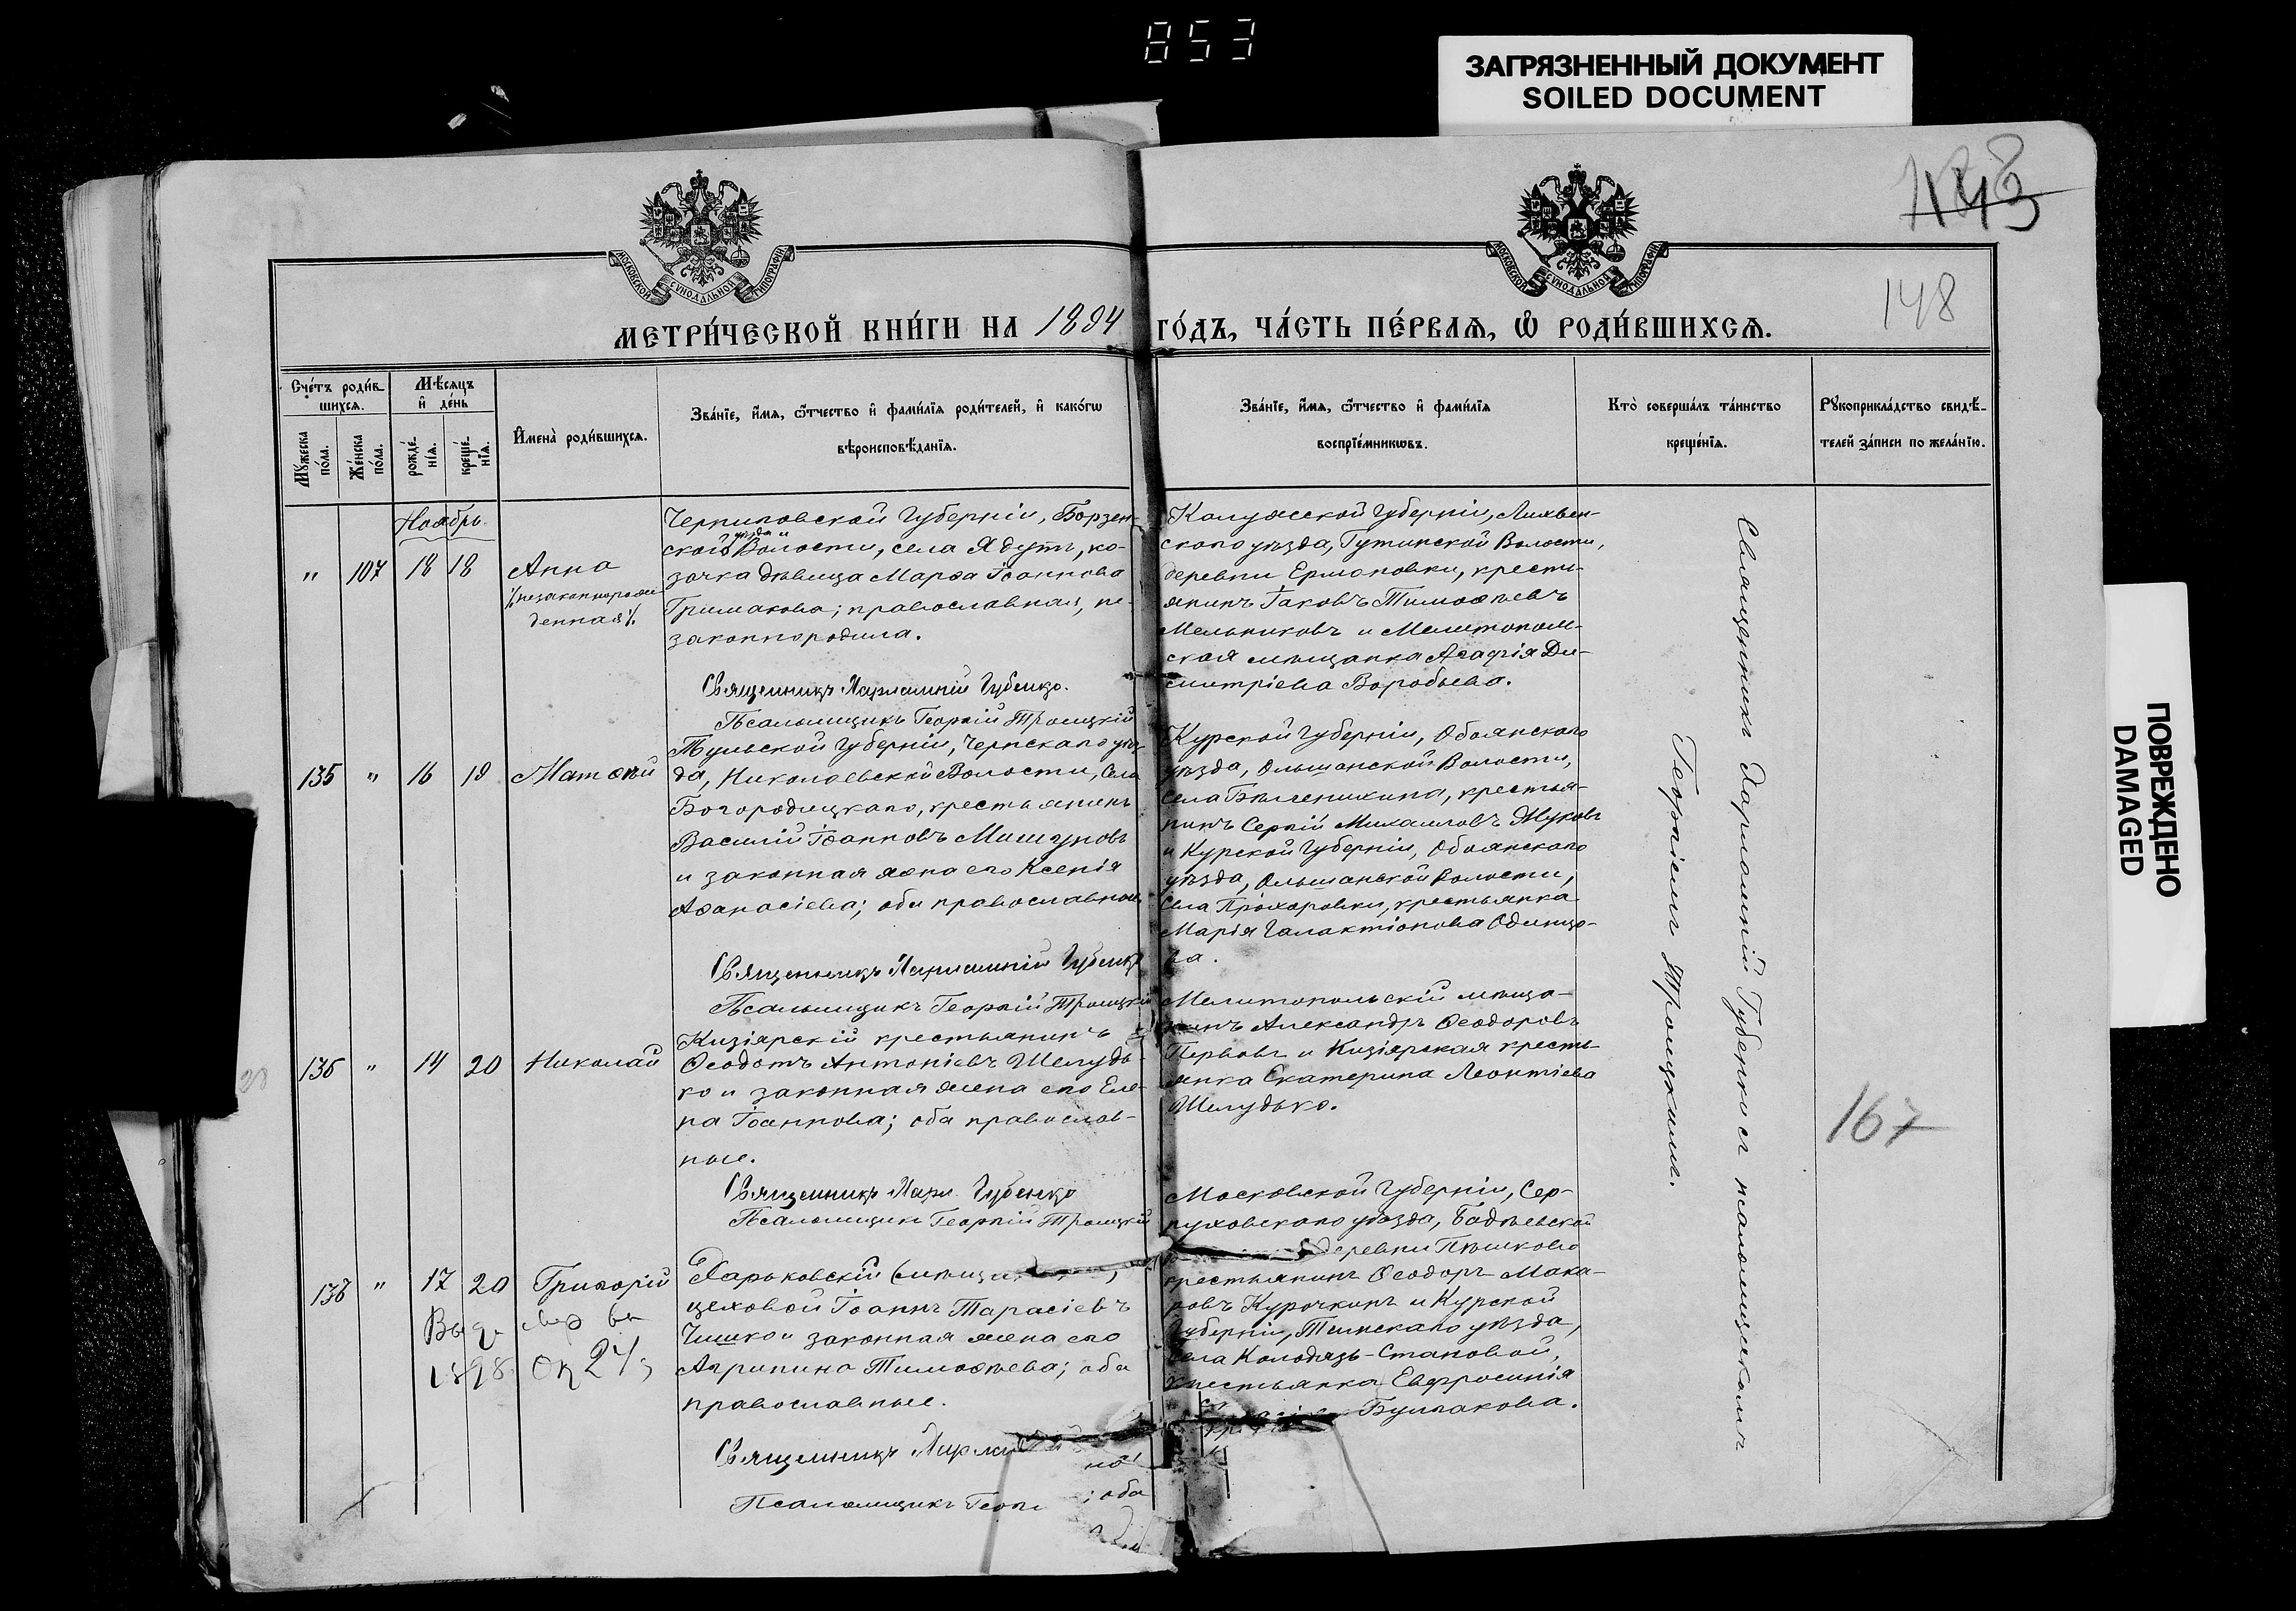 853
ЗАГРЯЗНЕННЫЙ ДОКУМЕНТ
SOILED DOCUMENT
148
МОСКОВСКОЙ СУНОДАЛЬНОЙ ТИПОГРАФІИ
МОСКОВСКОЙ СУНОДАЛЬНОЙ ТИПОГРАФІИ
МЕТРИ́ЧЕСКОЙ КНИ́ГИ НА 1894 ГО́ДЪ, ЧА́СТЬ ПЕ́РВАѦ, Ѡ РОДИ́ВШИХСѦ.
Сче́тъ роди́в-
шихсѧ.
Мꙋ́жеска по́ла.
Же́нска по́ла.
Мѣ́сѧцъ
и҆ де́нь
рожде́-
нїѧ.
креще́-
нїѧ.
И҆мена̀ роди́вшихсѧ.
Зва́нїе, и҆́мѧ, ѻ҆́тчество и҆ фами́лїѧ роди́телей, и҆ како́гѡ
вѣроисповѣ́данїѧ.
Зва́нїе, и҆́мѧ, ѻ҆́тчество и҆ фами́лїѧ
воспрїе́мникѡвъ.
Кто̀ соверша́лъ та́инство
креще́нїѧ.
Рꙋкоприкла́дство свидѣ́-
телей за́писи по жела́нїю.
Ноябрь.
" 107 18 18 Анна
/незаконнорож-
денная/.
Черниговской Губерніи, Борзен-
ской уѣзда и Волости, села Ядутъ, ко-
зачка дѣвица Марѳа Іоаннова
Гримакова; православная, не-
законнородила.
Священникъ Харлампій Губенко.
Псаломщикъ Георгій Троицкій
Калужской Губерніи, Лихвен-
скаго уѣзда, Гутинской Волости,
деревни Ермоловки, кресть-
янинъ Іаковъ Тимоѳѣевъ
Мельниковъ и Мелитополь-
ская мѣщанка Агафія Ди-
митріева Воробьева.
135 " 16 19 Матѳѣй
Тульской Губерніи, Чернскаго уѣз-
да, Николаевской Волости, Села
Богородицкаго, крестьянинъ
Василій Іоанновъ Машуновъ
и законная жена его Ксенія
Аѳанасіева; оба православные
Священникъ Харлампій Губенко
Псаломщикъ Георгій Троицкій
Курской Губерніи, Обоянскаго
уѣзда, Ольшанской Волости,
крестья-
нинъ Сергій Михаиловъ Жуковъ
и Курской Губерніи, Обоянскаго
уѣзда, Ольшанской Волости,
Села Прохоровки, крестьянка
Марія Галактіонова Одинцо-
ва.
136 " 14 20 Николай
Кизіярскій крестьянинъ
Ѳеодотъ Антоніевъ Шелудь-
ко и законная жена его Еле-
на Іоаннова; оба православ-
ные.
Священникъ Харл. Губенко
Псаломщикъ Георгій Троицкій
Мелитопольскій мѣща-
нинъ Александръ Ѳеодоровъ
Первовъ и Кизіярская кресть-
янка Екатерина Леонтіева
Шелудько.
167
138 " 17 20 Григорій
1898
Харьковскій
цеховой Іоаннъ Тарасіевъ
Чишко и законная жена его
Агрипина Тимоѳѣева; оба
православные.
Священникъ
Псаломщикъ
; оба
Московской Губерніи, Сер-
пуховскаго уѣзда, Бадѣевской
деревни Пѣшково
крестьянинъ Ѳеодоръ Мака-
ровъ Курочкинъ и Курской
Губерніи, Тимскаго уѣзда,
Села Колодязь-Становой,
крестьянка Евфросинія
Булгакова.
Священникъ Харлампій Губенко съ псаломщикомъ
Георгіемъ Троицкимъ.
ПОВРЕЖДЕНО
DAMAGED